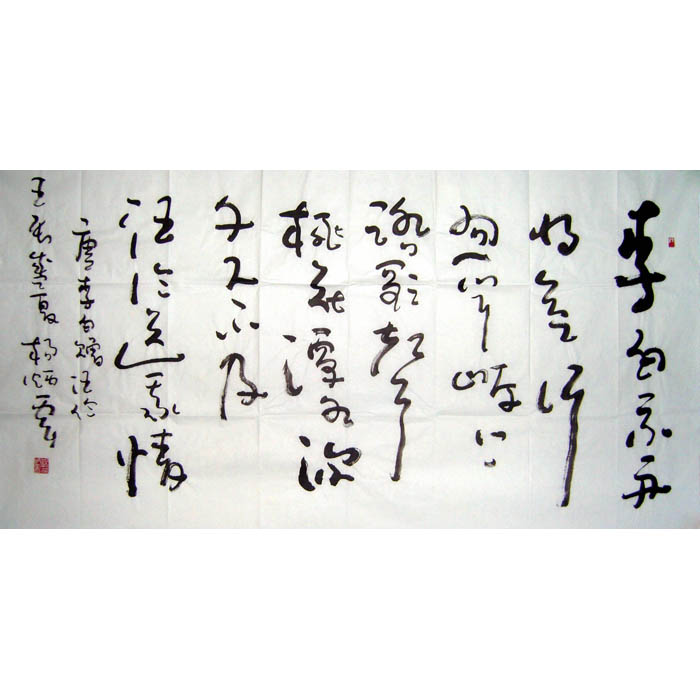 李白乘舟
将欲行
忽闻岸上
踏歌声
桃花潭水深
千尺不及
汪伦送我情
唐李白赠汪伦
夏杨炳